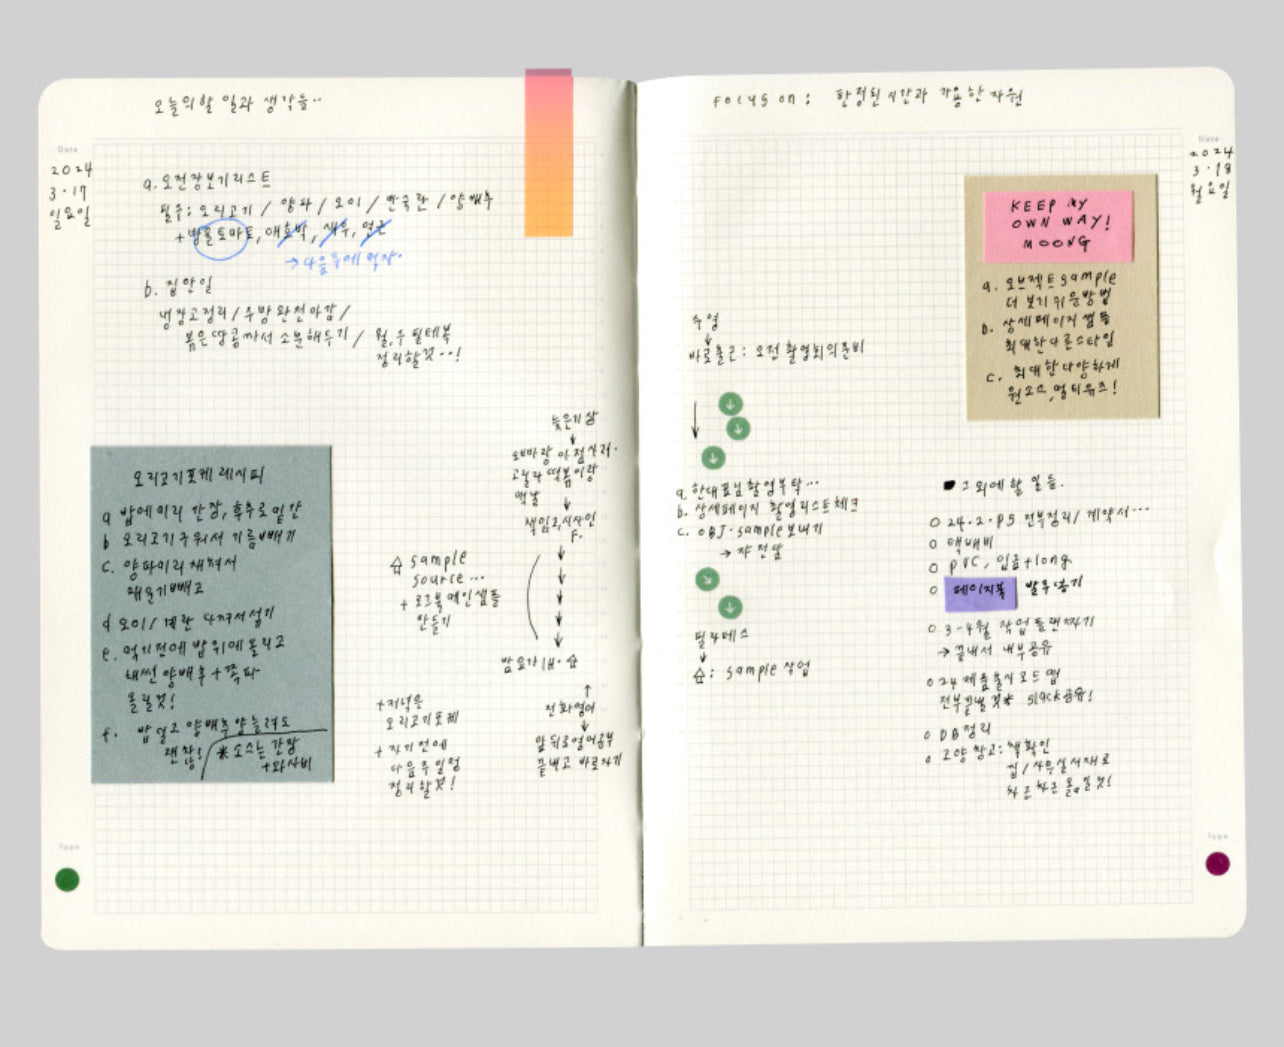 오늘의 할 일과 생각들..
Date
2024
3.17
일요일
a. 오전장보기리스트
필수: 오리고기 / 양파 / 오이 / 반숙란 / 양배추
+ 방울토마토, 애호박, 새우, 연근
→ 다음주에 먹자.
b. 집안일
냉장고정리 / 주방 완전마감 /
볶은땅콩까서 소분해두기 / 월,수 필테복
정리할것..!
오리고기포케 레시피
a 밥에미리 간장, 후추로 밑간
b 오리고기구워서 기름빼기
c. 양파미리채쳐서
매운기빼고
d 오이 / 계란 다져서섞기
e. 먹기전에 밥위에올리고
채썬양배추+쪽파
올릴것!
f. 밥덜고 양배추양늘려도
괜찮!
* 소스는 간장
+와사비
늦은기상
오빠랑 아점사러.
고릴라 떡볶이랑
맥날
책읽고,
F.
sample
source...
+ 로그북 메인샘플
만들기
밤요가 1H.
전화영어
앞뒤로영어공부
끝내고 바로자기
+저녁은
오리고기포케
+ 자기전에
다음주일정
정리할것!
Type
Focus on : 한정된 시간과 가용한 자원
Date
2024
3.18
월요일
KEEP MY
OWN WAY!
MOONG
a. 오브젝트 sample
더 보기쉬운방법
b. 상세페이지샘플
최대한다른스타일
c. 최대한다양하게
원소스,멀티유즈!
수영
바로출근: 오전촬영회의준비
a. 한대표님촬영부탁...
b. 상세페이지 촬영리스트체크
c. OBJ. sample 보내기
→ 자전달
필라테스
: sample 작업
그외에할일들.
24.2.PS 전부정리 / 계약서...
택배비
PVC, 입금+long
페이지북 발주넣기
3-4월 작업플랜짜기
→ 끝내서 내부공유
24 제품출시로드맵
전부끝낼것* slack공유!
DB정리
고양창고: 책확인
집/사무실서재로
차근차근 옮길것!
Type